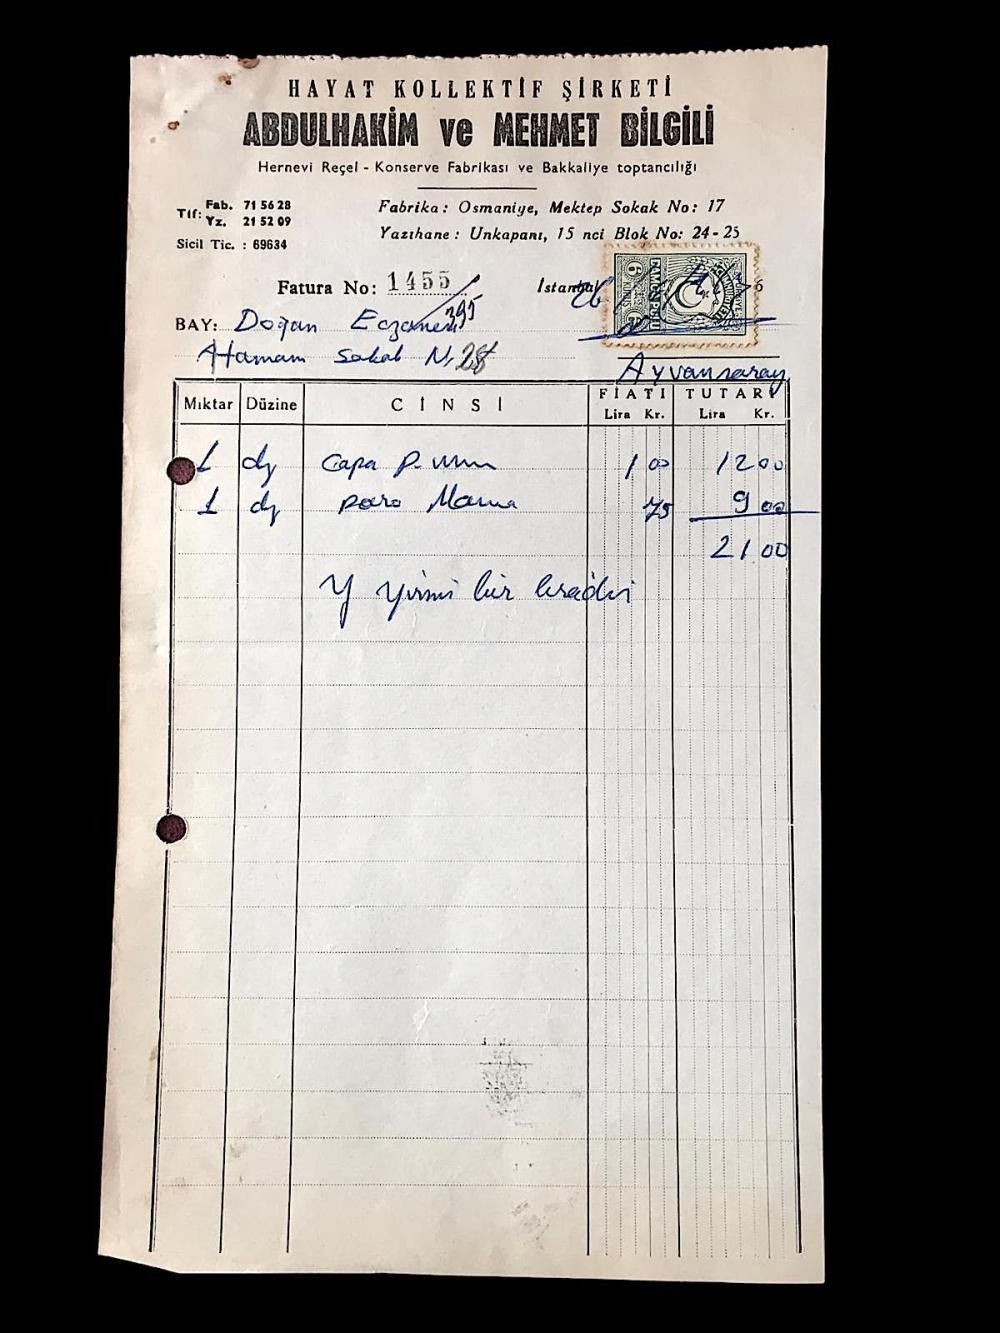 HAYAT KOLLEKTİF ŞİRKETİ
ABDULHAKİM ve MEHMET BİLGİLİ
Hernevi Reçel - Konserve Fabrikası ve Bakkaliye toptancılığı
Tlf: Fab. 71 56 28
Yz. 21 52 09
Sicil Tic. : 69634
Fabrika : Osmaniye, Mektep Sokak No: 17
Yazıhane : Unkapanı, 15 nci Blok No: 24-25
Fatura No: 1455 / 395
İstanbul 26 6
6 KURUŞ
BAY: Doğan Eczanesi
Hamam Sokak N. 28
Ayvansaray
Mıktar Düzine CİNSİ FİATI TUTARI
Lira Kr. Lira Kr.
1 dz Capa P. 1 00 12 00
1 dz Mama 75 9 00
21 00
Y yirmi bir liradır